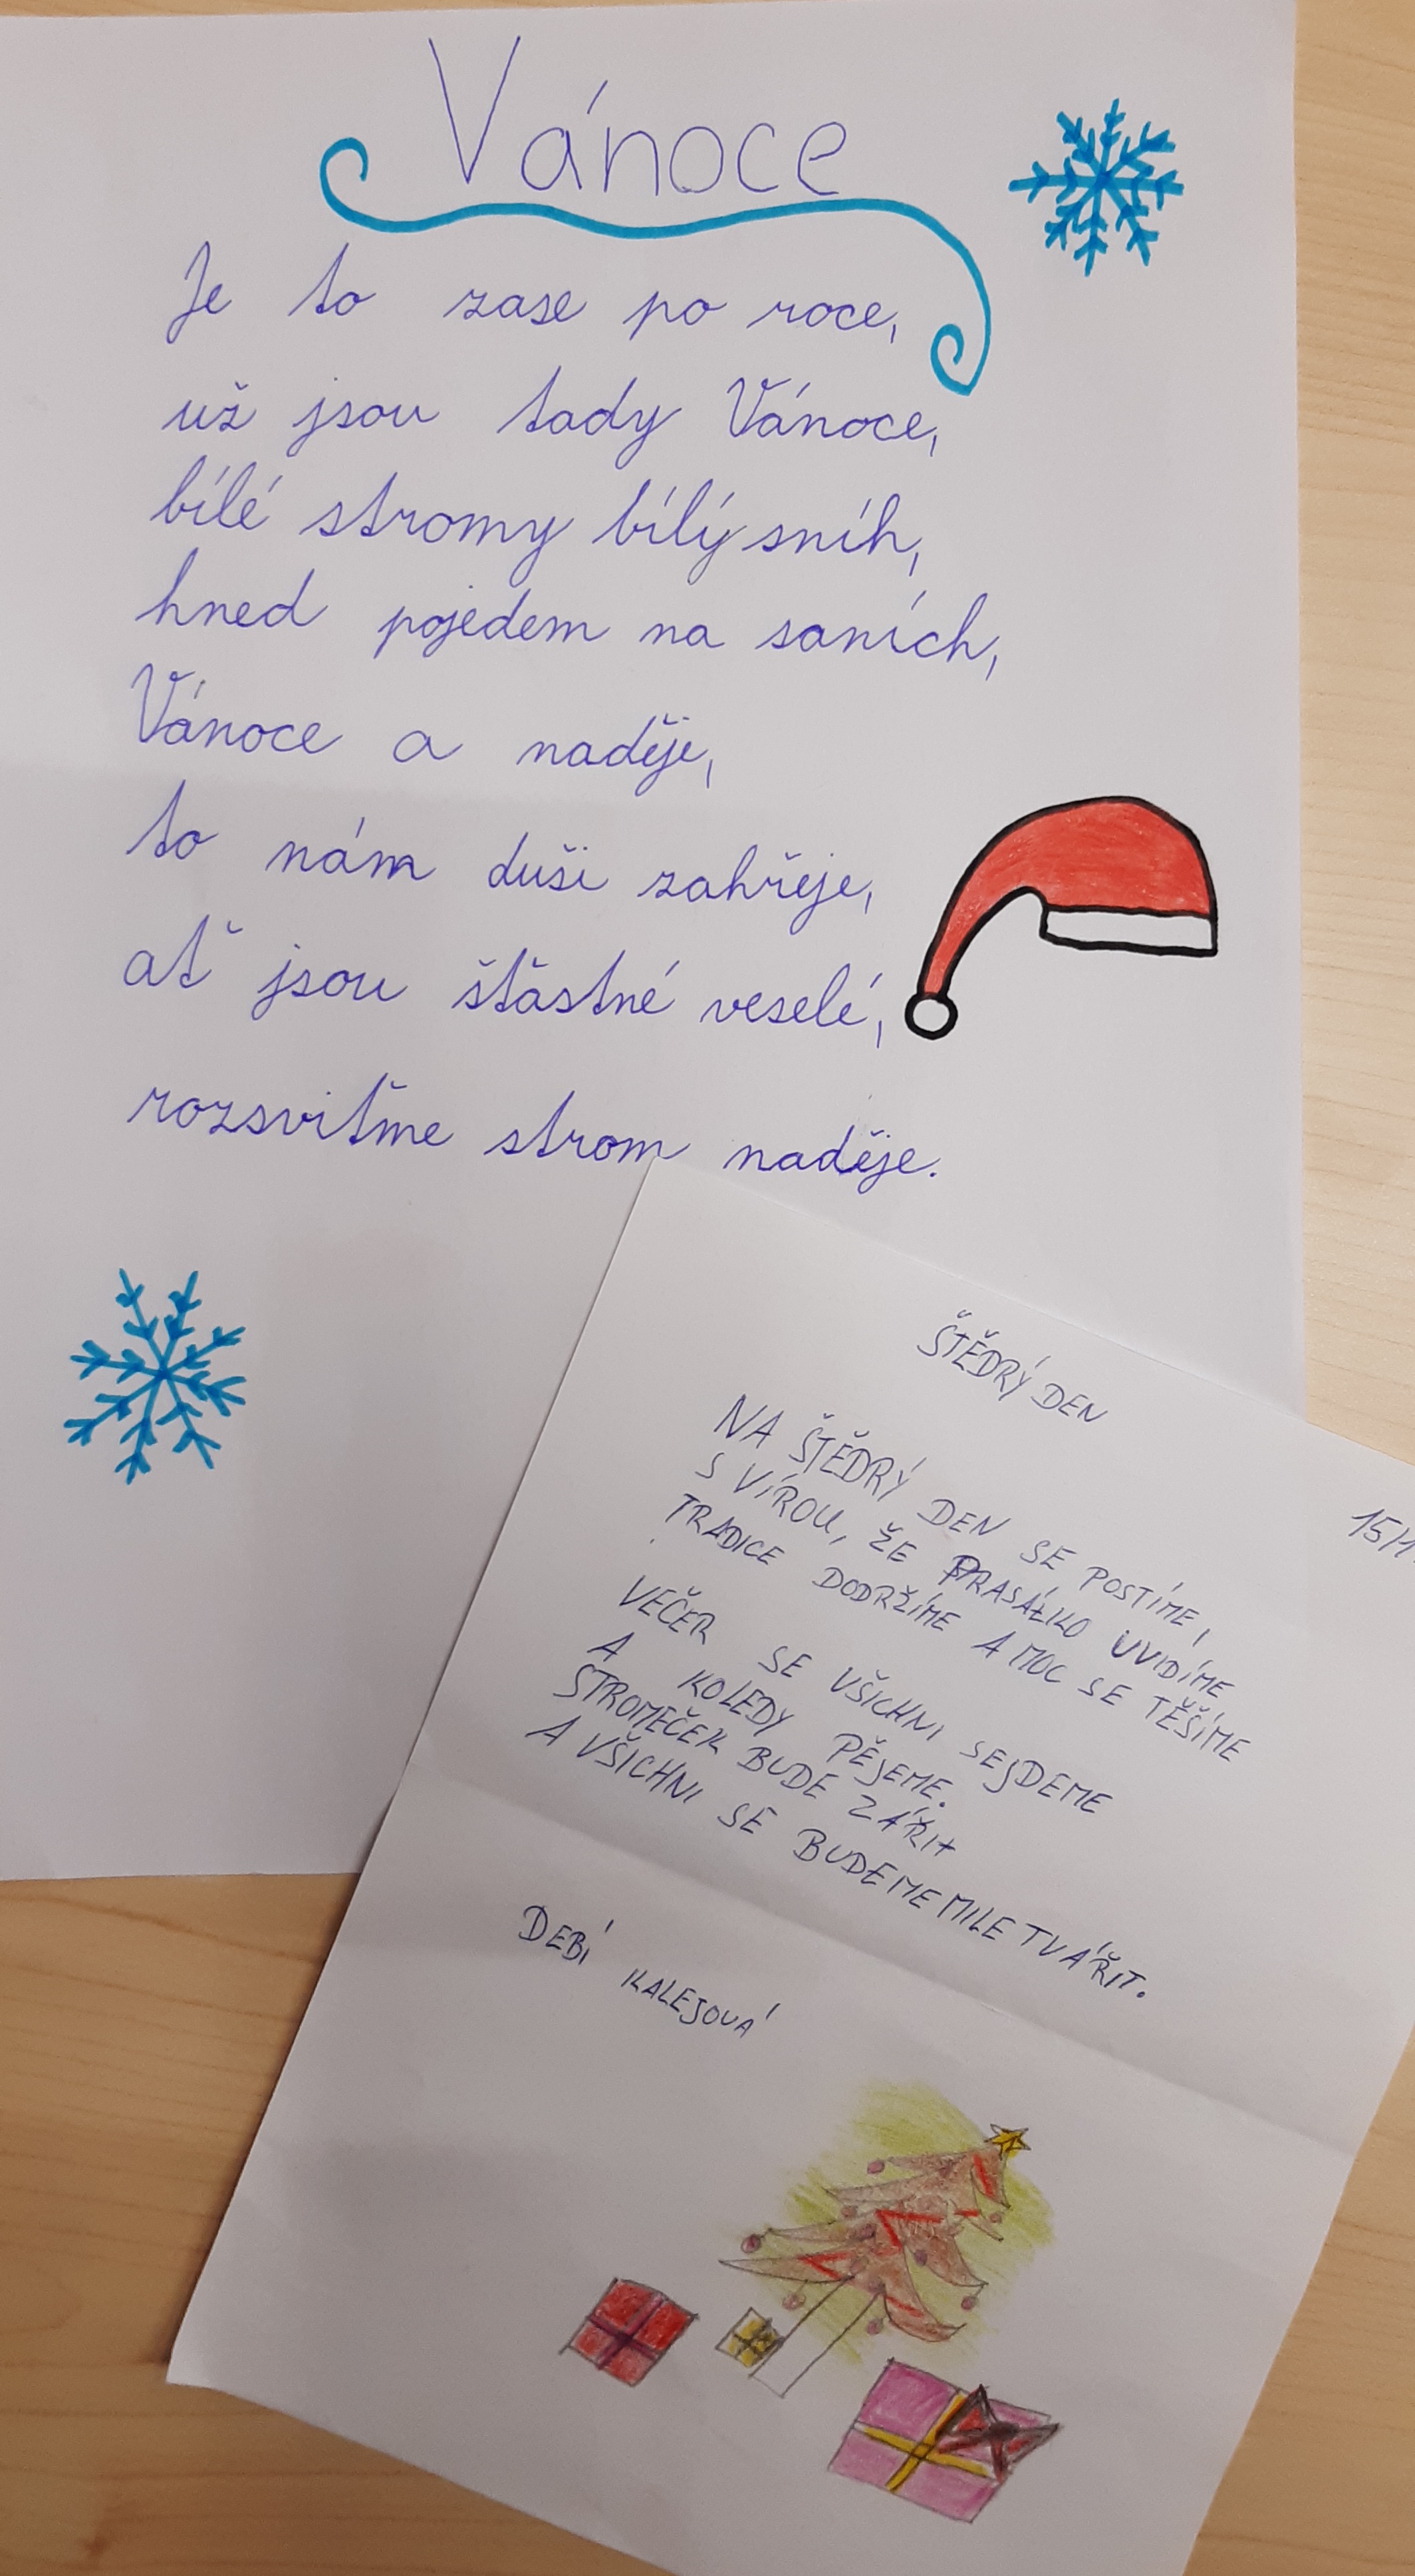 Vánoce
Je to zase po roce,
už jsou tady Vánoce,
bílé stromy bílý sníh,
hned pojedem na saních,
Vánoce a naděje,
to nám duši zahřeje,
ať jsou šťastné veselé,
rozsviťme strom naděje.
ŠTĚDRÝ DEN
15/1
NA ŠTĚDRÝ DEN SE POSTÍME,
S VÍROU, ŽE PRASÁTKO UVIDÍME
TRADICE DODRŽÍME A MOC SE TĚŠÍME
VEČER SE VŠICHNI SEJDEME
A KOLEDY PĚJEME.
STROMEČEK BUDE ZÁŘIT
A VŠICHNI SE BUDEME MILE TVÁŘIT.
DEBÍ KALEJOVÁ